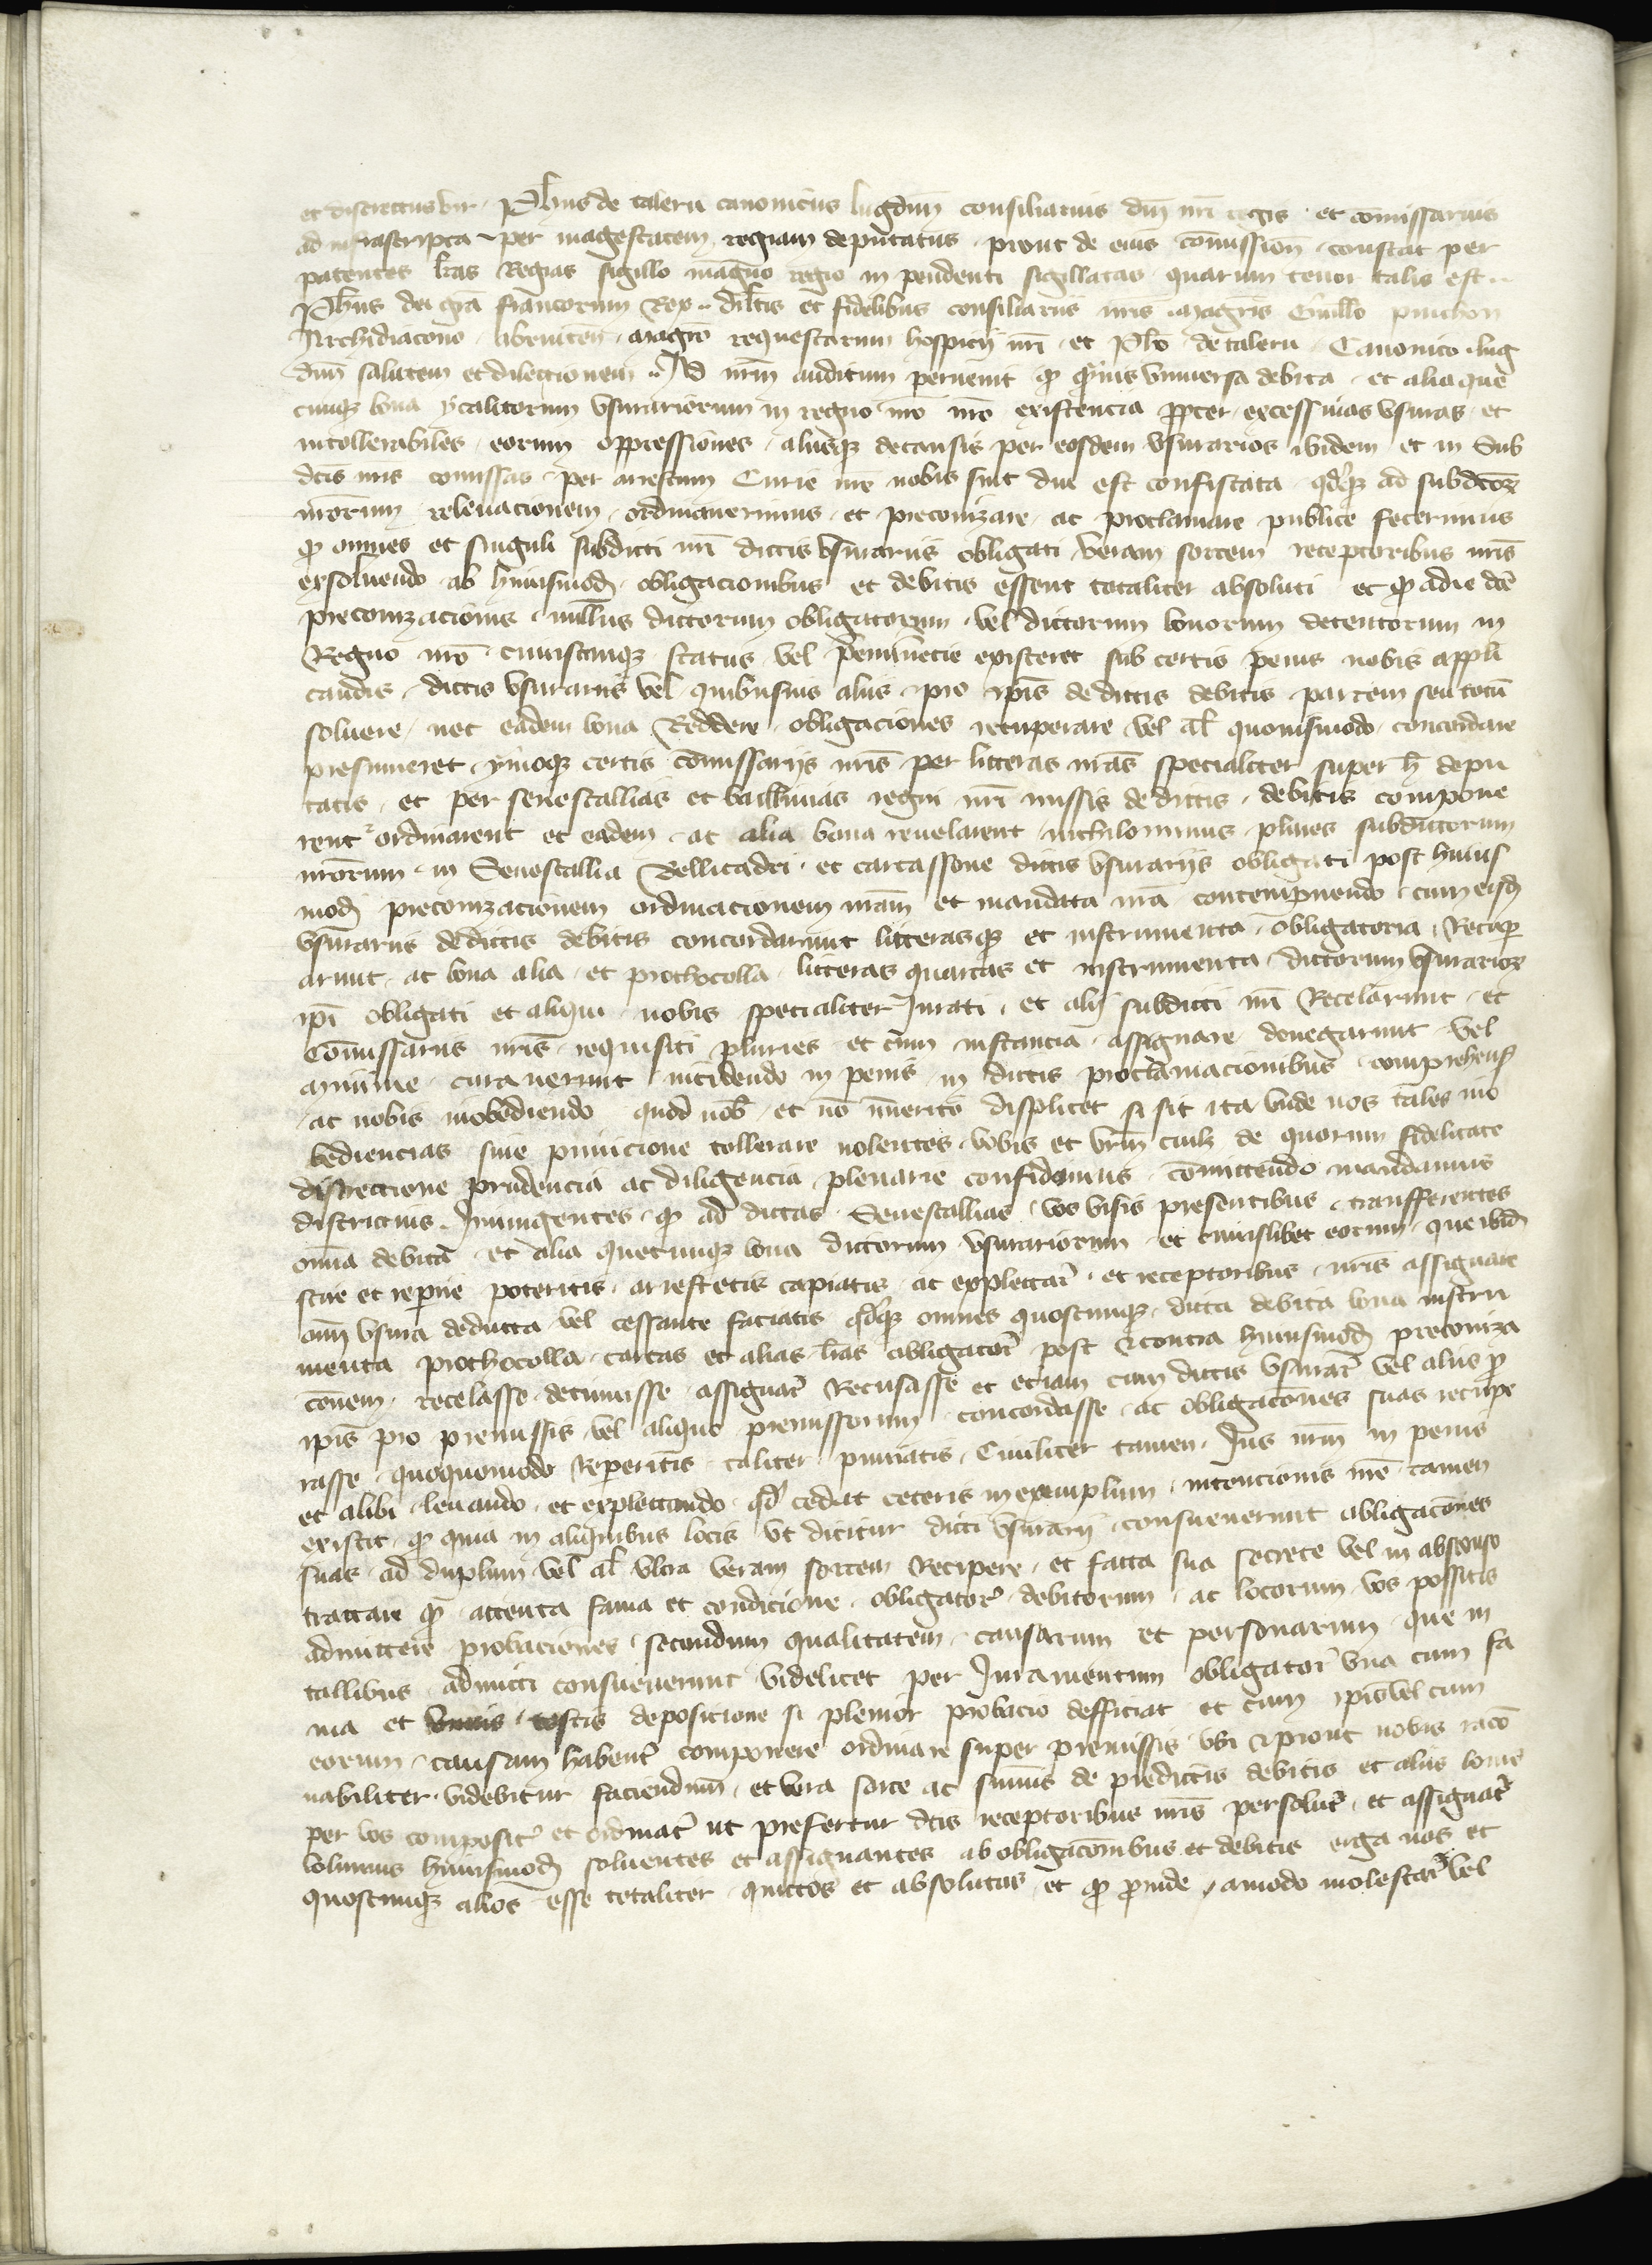 et discrettus vir Phus de talern canonicus lugdun̄ consiliarius dn̄i nr̄i regis et com̄issarius
ad infrascripta per magestatem regiam deputatus prout de eius com̄ission̄ constat per
patentes lr̄as Regias sigillo magno regio in pendenti sigillatas quarum tenor talis est
Phus dei gr̄a francorum Rex dilc̄tis et fidelibus consiliariis nr̄is magr̄is Guill̄o pinchon
Archidiacono abrincen̄ magr̄o requestarum hospicij nr̄i et Ph̄o de talern Canonico lug
dun̄ salutem et dilectionem Ad nr̄m auditum pervenit qd̄ quamvis universa debita et alia que
cumqz bona ytalicorum usurariorum in regno nr̄o existencia propter excessivas usuras et
intollerabiles eorum oppressiones aliisqz de causis per eosdem usurarios ibidem et in Sub
dc̄is nr̄is com̄issas per arrestum Curie nr̄e nobis sint diu est confiscata qd̄qz ad subdc̄or
nr̄orum relevacionem ordinaverimus et preconizare ac proclamare publice fecerimus
qd̄ omnes et singuli subdicti nr̄i dictis usurariis obligati veram sortem receptoribus nr̄is
exsolvendo ab huiusmod̄ obligacionibus et debitis essent totaliter absoluti et qd̄ a die dc̄e
preconizacionis nullus dictorum obligatorum vel dictorum bonorum detentorum in
Regno nr̄o cuiuscunqz status vel preminencie existeret sub certis penis nobis appli
candis dictis usurariis vel quibusvis aliis pro ip̄is de dictis debitis partem seu totū
solvere nec eadem bona Reddere obligaciones recuperare vel al̄ quovismodo concordare
presumeret ymoqz certis com̄issarijs nr̄is per litteras nr̄as specialiter super h̄ depu
tatis et per senescallias et baillivias regni nr̄i missis de dictis debitis compone
rent ordinarent et eadem ac alia bona revelarent nichilominus plures subdictorum
nr̄orum in Senescallia Bellicadri et carcassone dictis usurarijs obligati post huius
mod̄ preconizacionem ordinacionem nr̄am et mandata nr̄a contempnendo cum eisd̄
usurariis de dictis debitis concordarunt litterasqz et instrumenta obligatoria Recuper
arunt ac bona alia et prothocolla litteras quartas et instrumenta dictorum usurarior
ip̄i obligati et aliqui nobis specialiter Jurati et alij subdicti nr̄i Recelarunt et
Com̄issariis nr̄is requisiti pluries et cum instancia assignare denegarunt vel
minime curaverunt incidendo in penis in dictis proclamacionibus comprehens̄
ac nobis inobediendo quod nob̄ et nō īmerito displicet si sit ita unde nos tales ino
bediencias sine punicione tollerare nolentes vobis et vr̄m cuilz de quorum fidelitate
discrecione prudencia ac diligencia plenarie confidimus com̄ittendo mandamus
districtius Iniungentes qd̄ ad dictas Senescallias vos visis presentibus transfferentes
om̄ia debita et alia quecunqz bona dictorum usurariorum et cuiuslibet eorum que ibid̄
scire et reperire poteritis arrestetis capiatis ac explectar̄ et receptoribus nr̄is assignare
om̄i usura deducta vel cessante faciatis qd̄qz omnes quoscunqz dicta debita bona instru
menta prothocolla cartas et alias lr̄as obligator̄ post & contra huiusmod̄ preconiza
cōnem recelasse detinuisse assignar̄ Recusasse et etiam cum dictis usurar̄ vel aliis p̄
ip̄is pro premissis vel aliquo premissorum concordasse ac obligacōnes suas recupe
rasse quoquomodo Reperitis taliter puniatis Civiliter tamen Jus nr̄m in penis
et alibi levando et explectando qd̄ cedat ceteris in exemplum intencionis nr̄e tamen
existit qd̄ quia in aliquibus locis ut dicitur dicti usurarij consueverunt obligacōnes
suas ad duplum vel al̄ ultra veram sortem Recipere et facta sua secrete vel in absconso
tractare qd̄ attenta fama et condicione obligator̄ debitorum ac locorum vos possitis
admittere probaciones secundum qualitatem causarum et personarum que in
tallibus admitti consueverunt videlicet per Juramentum obligator̄ una cum fa
ma et unius testis deposicione si plenior probacio defficiat et cum ip̄is vel cum
eorum causam habent̄ componere ordinare super premissis ubi & prout nobis racō
nabiliter videbitur faciendum et vera sorte ac summis de predictis debitis et aliis bonis
per vos composit̄ et ordinat̄ ut prefertur dc̄is receptoribus nr̄is persolut̄ et assignat̄
volumus huiusmod̄ solventes et assignantes ab obligacōnibus et debitis erga nos et
quoscunqz alios esse totaliter quittos et absolutos et qd̄ proinde amodo molestar̄ vel